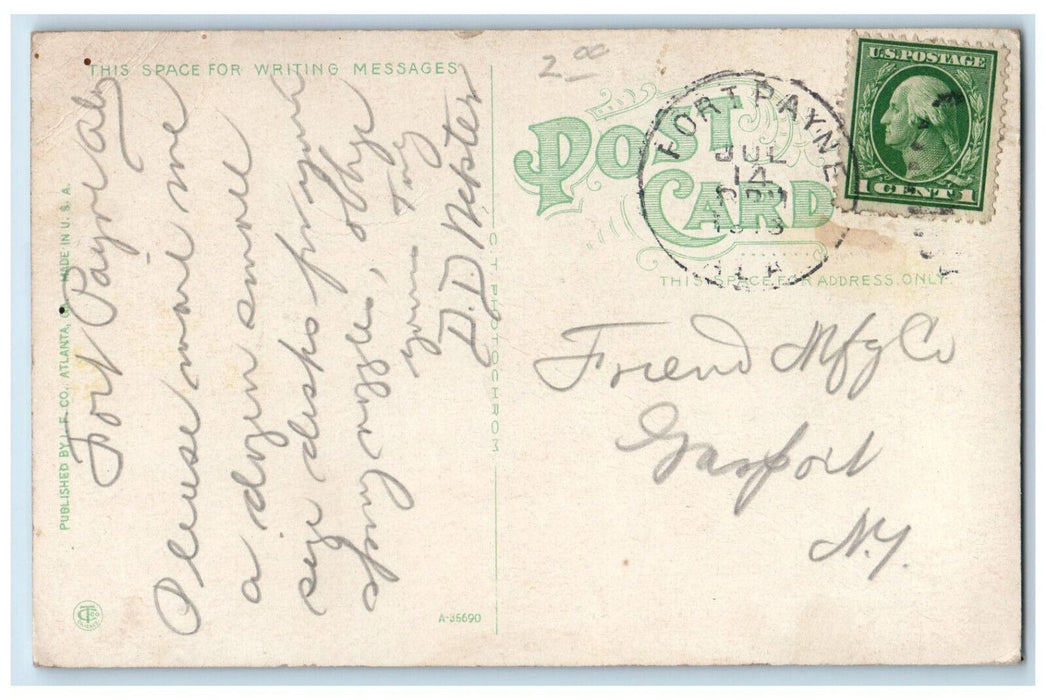 THIS SPACE FOR WRITING MESSAGES
Fort Payne Ala
Please mail me
a dozen small
size disks for your
spray nozzles,
yours Truly
D. D.
PUBLISHED BY I. F. CO., ATLANTA, GA. MADE IN U.S.A.
A-35690
C.T. PHOTOCHROM
2.00
POST
CARD
FORT PAYNE
JUL
14
ALA
U.S. POSTAGE
1 CENT 1
THIS SPACE FOR ADDRESS ONLY.
Friend Mfg Co
Gasport
N.Y.